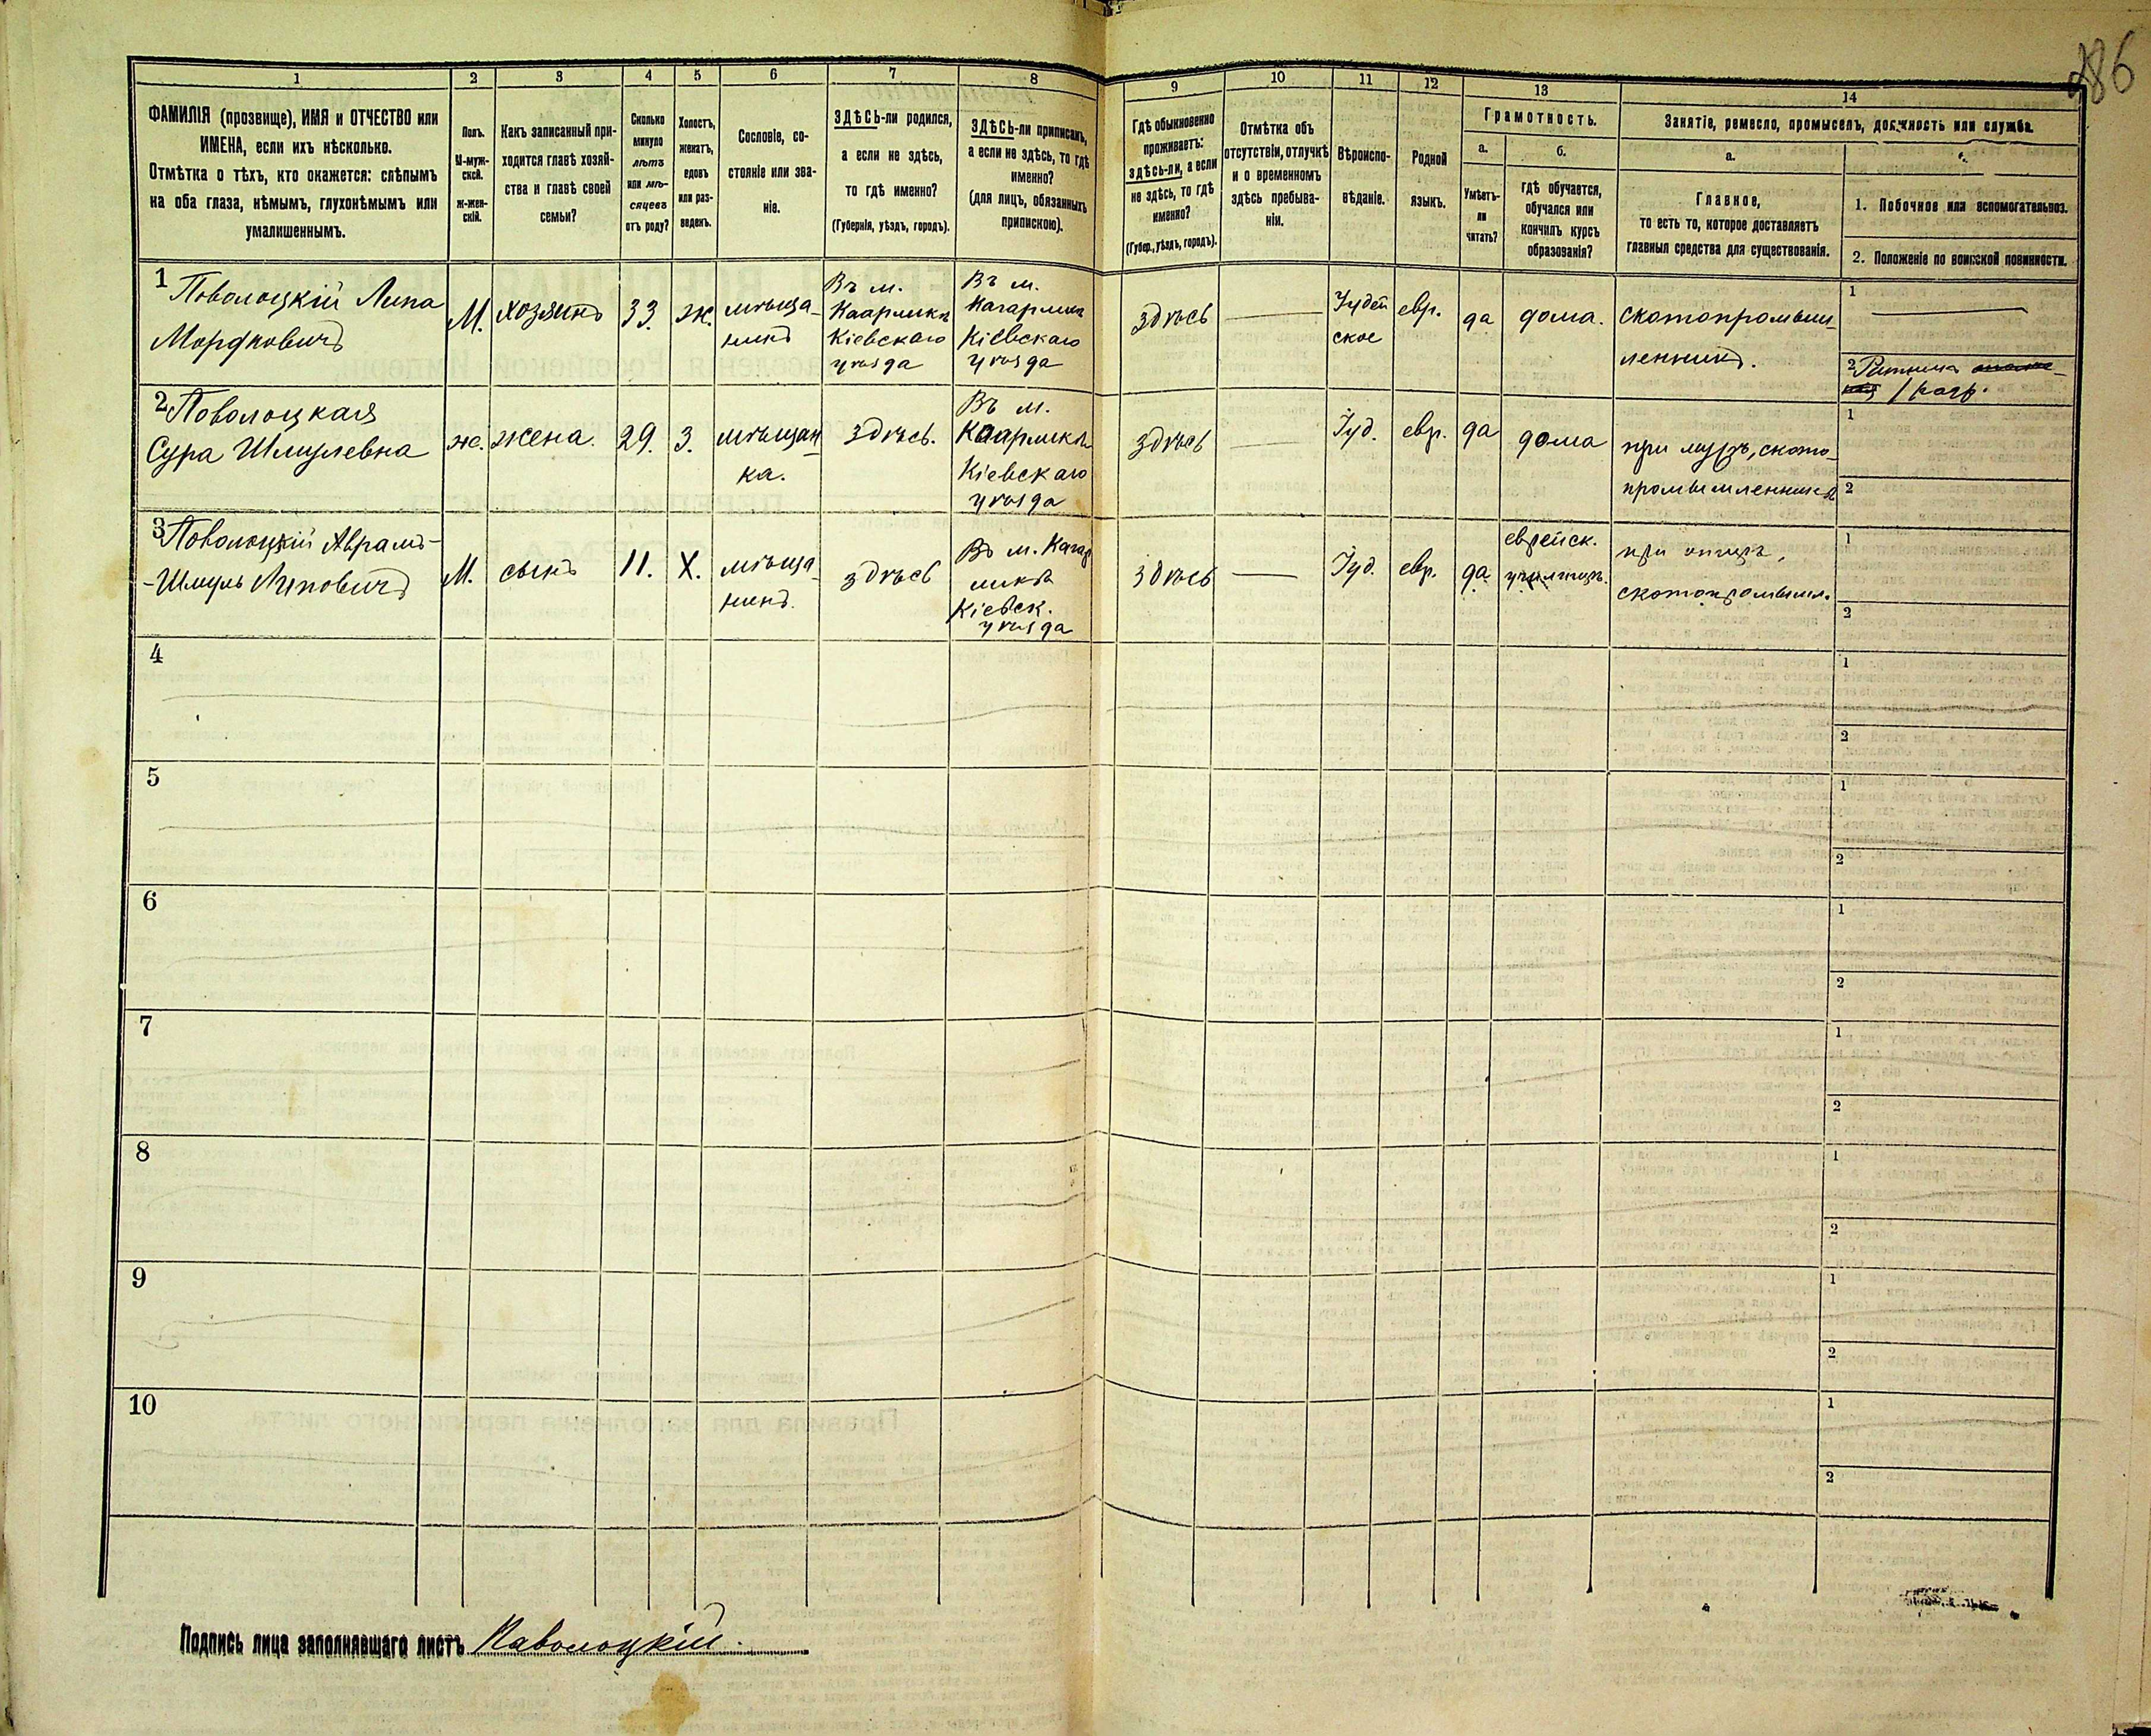 286
1
2
3
4
5
6
7
8
9
10
11
12
13
14
ФАМИЛІЯ (прозвище), ИМЯ и ОТЧЕСТВО или
ИМЕНА, если ихъ нѣсколько.
Отмѣтка о тѣхъ, кто окажется: слѣпымъ
на оба глаза, нѣмымъ, глухонѣмымъ или
умалишеннымъ.
Полъ.
М-муж-
ской.
ж-жен-
скій.
Какъ записанный при-
ходится главѣ хозяй-
ства и главѣ своей
семьи?
Сколько
минуло
лѣтъ
или мѣ-
сяцевъ
отъ роду?
Холостъ,
женатъ,
вдовъ
или раз-
веденъ.
Сословіе, со-
стояніе или зва-
ніе.
ЗДѢСЬ-ли родился,
а если не здѣсь,
то гдѣ именно?
(Губернія, уѣздъ, городъ).
ЗДѢСЬ-ли приписанъ,
а если не здѣсь, то гдѣ
именно?
(для лицъ, обязанныхъ
припискою).
Гдѣ обыкновенно
проживаетъ:
здѣсь-ли, а если
не здѣсь, то гдѣ
именно?
(Губер., уѣздъ, городъ).
Отмѣтка объ
отсутствіи, отлучкѣ
и о временномъ
здѣсь пребыва-
ніи.
Вѣроиспо-
вѣданіе.
Родной
языкъ.
Грамотность.
а.
Умѣетъ-
ли
читать?
б.
гдѣ обучается,
обучался или
кончилъ курсъ
образованія?
Занятіе, ремесло, промыселъ, должность или служба.
а.
Главное,
то есть то, которое доставляетъ
главныя средства для существованія.
1. Побочное или вспомогательное.
2. Положеніе по воинской повинности.
1 Поволоцкій Липа
Мордковичъ
М.
хозяинъ
33.
ж.
мѣща-
нинъ
Въ м.
Каарликѣ
Кіевскаго
уѣзда
Въ м.
Кагарликѣ
Кіевскаго
уѣзда
здѣсь
Іудей
ское
евр.
да
дома.
скотопромыш-
ленникъ.
1
2 Ратникъ
1 разр.
2 Поволоцкая
Сура Шмулевна
ж.
жена.
29.
З.
мѣщан-
ка.
здѣсь.
Въ м.
Каарликѣ
Кіевскаго
уѣзда
здѣсь
Іуд.
евр.
да
дома
при мужѣ, ското-
промышленникѣ
1
2
3 Поволоцкій Аврамъ-
-Шмуль Липовичъ
М.
сынъ
11.
Х.
мѣща-
нинъ.
здѣсь
Въ м. Кагар
ликѣ
Кіевск.
уѣзда
здѣсь
Іуд.
евр.
да.
еврейск.
училищѣ.
при отцѣ,
скотопромышл.
1
2
4
1
2
5
1
2
6
1
2
7
1
2
8
1
2
9
1
2
10
1
2
Подпись лица заполнявшаго листъ Паволоцкій.